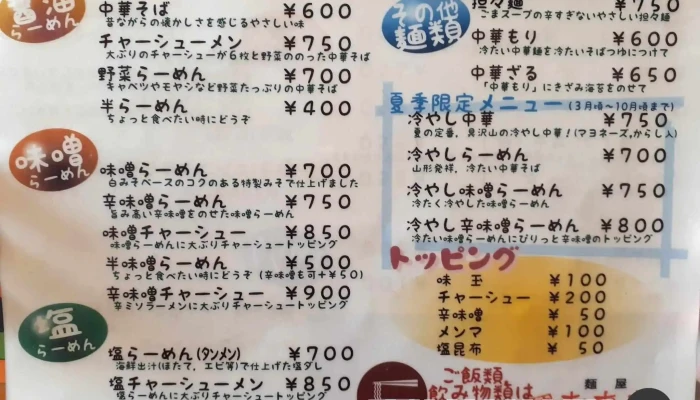 醤油
らーめん
中華そば ¥600
昔ながらの懐かしさを感じるやさしい味
チャーシューメン ¥750
大ぶりのチャーシューが6枚と野菜ののった中華そば
野菜らーめん ¥700
キャベツやモヤシなど野菜たっぷりの中華そば
半らーめん ¥400
ちょっと食べたい時にどうぞ
味噌
らーめん
味噌らーめん ¥700
白みそベースのコクのある特製みそで仕上げました
辛味噌らーめん ¥750
旨み高い辛味噌をのせた味噌らーめん
味噌チャーシュー ¥850
味噌らーめんに大ぶりチャーシュートッピング
半味噌らーめん ¥500
ちょっと食べたい時にどうぞ(辛味噌も可+¥50)
辛味噌チャーシュー ¥900
辛ミソラーメンに大ぶりチャーシュートッピング
塩
らーめん
塩らーめん(タンメン) ¥700
海鮮出汁(ほたて,エビ等)で仕上げた塩ダレ
塩チャーシューメン ¥850
塩らーめんに大ぶりチャーシュートッピング
その他
麺類
担々麺 ¥750
ごまスープの辛すぎないやさしい担々麺
中華もり ¥600
冷たい中華麺を冷たいそばつゆにつけて
中華ざる ¥650
「中華もり」にきざみ海苔をのせて
夏季限定メニュー(3月頃~10月頃まで)
冷やし中華 ¥750
夏の定番,具沢山の冷やし中華!(マヨネーズ,からし入)
冷やしらーめん ¥700
山形発祥,冷たい中華そば
冷やし味噌らーめん ¥750
冷たく冷やした味噌らーめん
冷やし辛味噌らーめん ¥800
冷たい味噌らーめんにぴりっと辛味噌のトッピング
トッピング
味玉 ¥100
チャーシュー ¥200
辛味噌 ¥50
メンマ ¥100
塩昆布 ¥50
ご飯類
飲み物類は
麺屋